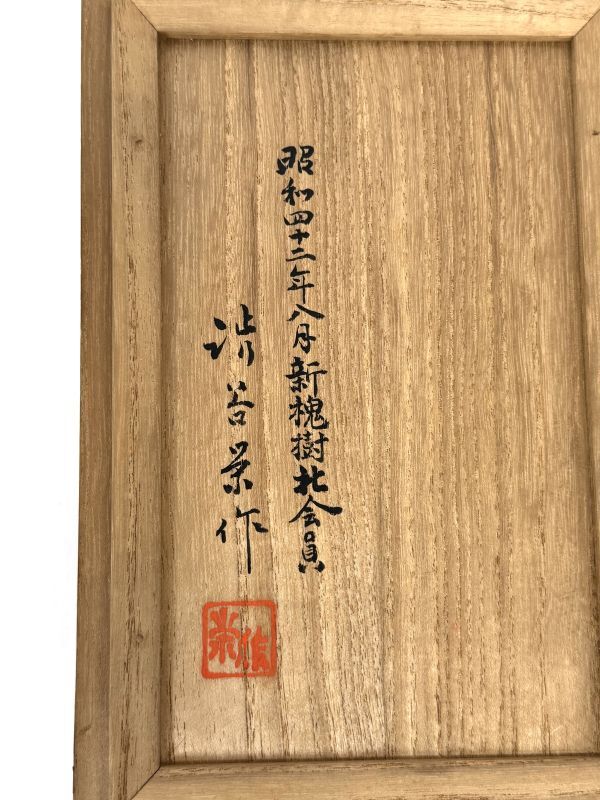 昭和四十二年八月新槐樹社会員
渋谷栄作
栄作